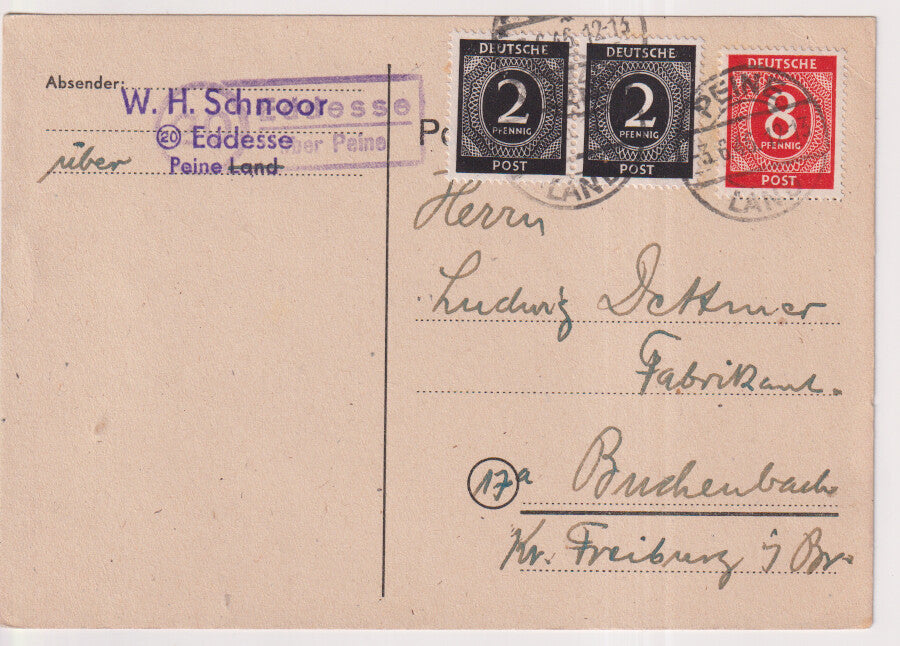 Absender:
W. H. Schnoor
(20) Eddesse
über Peine Land
Eddesse
über Peine
DEUTSCHE
2
PFENNIG
POST
DEUTSCHE
2
PFENNIG
POST
DEUTSCHE
8
PFENNIG
POST
6.46.12-13
LAND
PEINE
LAND
Herrn
Ludwig Dettmer
Fabrikant.
17a Buchenbach
Kr. Freiburg i/Br.